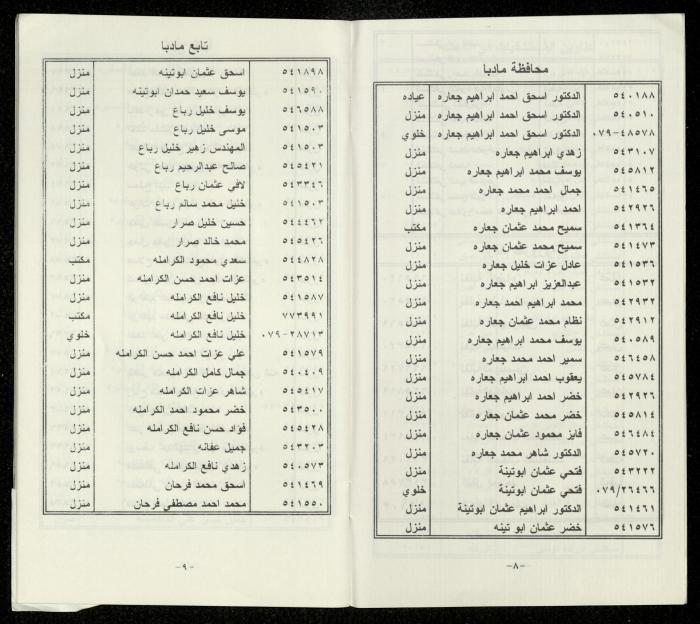 محافظة مادبا
٥٤٠١٨٨ الدكتور اسحق احمد ابراهيم جعاره عياده
٥٤٠٥١٠ الدكتور اسحق احمد ابراهيم جعاره منزل
٠٧٩-٤٨٥٧٨ الدكتور اسحق احمد ابراهيم جعاره خلوي
٥٤٣١٠٧ زهدي ابراهيم جعاره منزل
٥٤٥٨١٢ يوسف محمد ابراهيم جعاره منزل
٥٤١٤٦٥ جمال احمد محمد جعاره منزل
٥٤٢٩٢٦ احمد ابراهيم جعاره منزل
٥٤١٣٦٤ سميح محمد عثمان جعاره مكتب
٥٤١٤٧٣ سميح محمد عثمان جعاره منزل
٥٤١٥٣٦ عادل عزات خليل جعاره منزل
٥٤١٥٣٢ عبدالعزيز ابراهيم جعاره منزل
٥٤٢٩٣٢ محمد ابراهيم احمد جعاره منزل
٥٤٢٩١٢ نظام محمد عثمان جعاره منزل
٥٤٠٥٨٩ يوسف محمد ابراهيم جعاره منزل
٥٤٦٤٥٨ سمير احمد محمد جعاره منزل
٥٤٥٧٨٤ يعقوب احمد ابراهيم جعاره منزل
٥٤٢٩٢٦ خضر احمد ابراهيم جعاره منزل
٥٤٥٨١٤ خضر محمد عثمان جعاره منزل
٥٤٦٤٨٤ فايز محمود عثمان جعاره منزل
٥٤٥٧٢٠ الدكتور شاهر محمد جعاره منزل
٥٤٣٢٢٢ فتحي عثمان ابوتينة منزل
٠٧٩/٢٦٤٦٦ فتحي عثمان ابوتينة خلوي
٥٤١٤٦١ الدكتور ابراهيم عثمان ابوتينة منزل
٥٤١٥٧٦ خضر عثمان ابو تينه منزل
-٨-
تابع مادبا
٥٤١٨٩٨ اسحق عثمان ابوتينه منزل
٥٤١٥٩٠ يوسف سعيد حمدان ابوتينه منزل
٥٤٦٥٨٨ يوسف خليل رباع منزل
٥٤١٥٠٣ موسى خليل رباع منزل
٥٤١٥٠٣ المهندس زهير خليل رباع منزل
٥٤٥٤٢١ صالح عبدالرحيم رباع منزل
٥٤٣٣٤٦ لافي عثمان رباع منزل
٥٤١٥٠٣ خليل محمد سالم رباع منزل
٥٤٤٤٦٢ حسين خليل صرار منزل
٥٤٥٤٢٦ محمد خالد صرار منزل
٥٤٤٨٢٨ سعدي محمود الكرامله مكتب
٥٤٣٥١٤ عزات احمد حسن الكرامله منزل
٥٤١٥٨٧ خليل نافع الكرامله منزل
٧٧٣٩٩١ خليل نافع الكرامله مكتب
٠٧٩-٢٨٧١٣ خليل نافع الكرامله خلوي
٥٤١٥٧٩ علي عزات احمد حسن الكرامله منزل
٥٤٠٤٠٩ جمال كامل الكرامله منزل
٥٤٥٤١٧ شاهر عزات الكرامله منزل
٥٤٣٥٠٠ خضر محمود احمد الكرامله منزل
٥٤٥٤٢٨ فؤاد حسن نافع الكرامله منزل
٥٤٣٢٠٣ جميل عفانه منزل
٥٤٠٥٧٣ زهدي نافع الكرامله منزل
٥٤١٤٦٩ اسحق محمد فرحان منزل
٥٤١٥٥٠ محمد احمد مصطفى فرحان منزل
-٩-